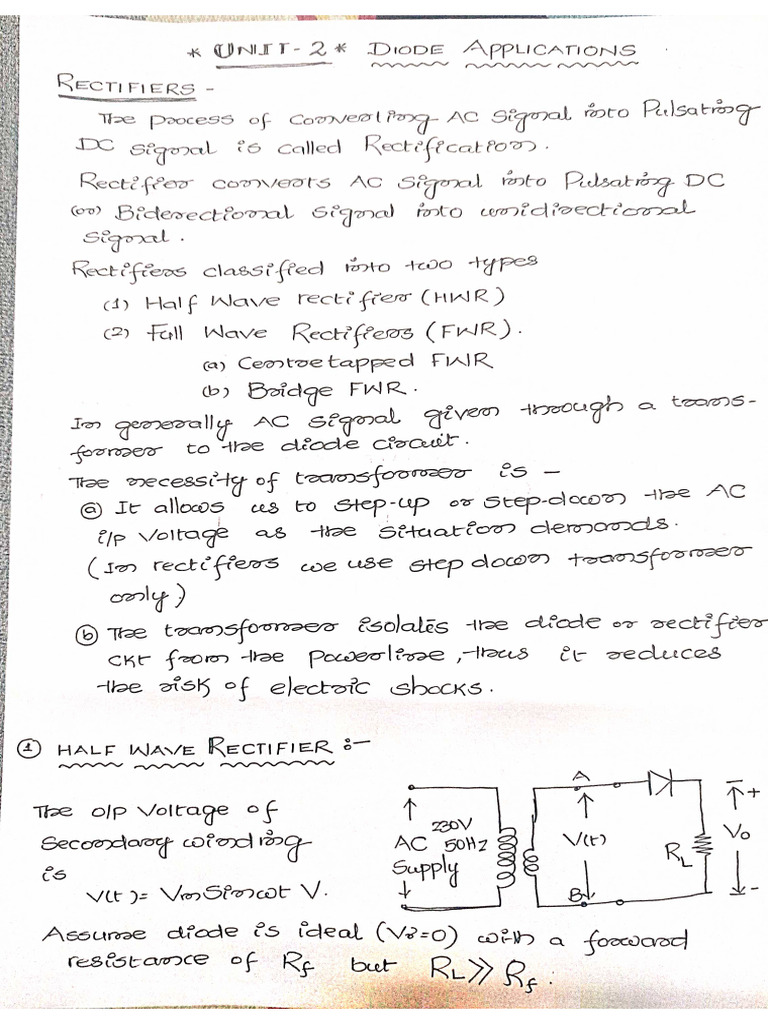 * UNIT-2 * DIODE APPLICATIONS
RECTIFIERS -
The process of converting AC signal into Pulsating
DC signal is called Rectification.
Rectifier converts AC signal into Pulsating DC
(or) Biderectional signal into unidirectional
signal.
Rectifiers classified into two types
(1) Half Wave rectifier (HWR)
(2) Full Wave Rectifiers (FWR).
(a) Centretapped FWR
(b) Bridge FWR.
In generally AC signal given through a trans-
former to the diode circuit.
The necessity of transformer is -
(a) It allows us to step-up or step-down the AC
i/p voltage as the situation demands.
(In rectifiers we use step down transformer
only)
(b) The transformer isolates the diode or rectifier
ckt from the powerline, thus it reduces
the risk of electric shocks.
(1) HALF WAVE RECTIFIER :-
The o/p voltage of
Secondary winding
is
V(t) = Vm Sin ωt V.
230V
AC 50HZ
Supply
A
V(t)
B
RL
+
Vo
-
Assume diode is ideal (Vr=0) with a forward
resistance of Rf but RL >> Rf.